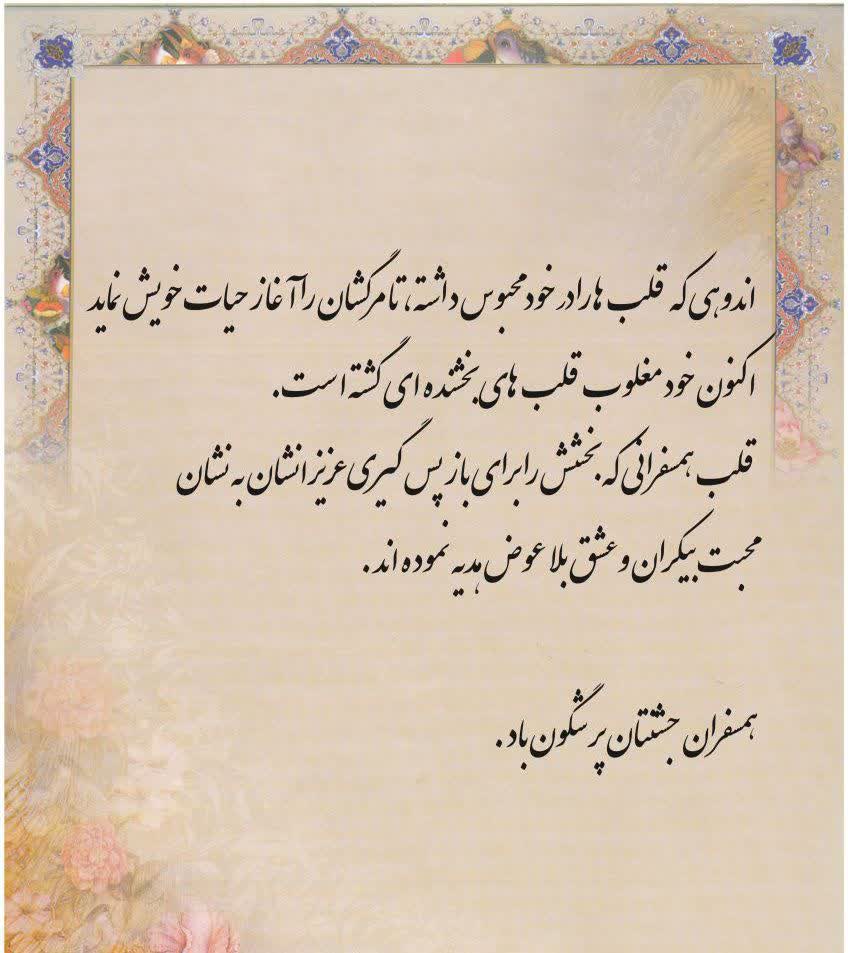 اندوهی که قلب ها را در خود محبوس داشته، تا مرگشان را آغاز حیات خویش نماید
اکنون خود مغلوب قلب های بخشنده ای گشته است.
قلب همسفرانی که بخشش را برای باز پس گیری عزیزانشان به نشان
محبت بیکران و عشق بلا عوض هدیه نموده اند.
همسفران جشنتان پر شگون باد.